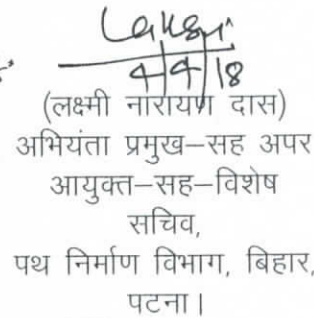 4/4/18
(लक्ष्मी नारायण दास)
अभियंता प्रमुख–सह अपर
आयुक्त–सह–विशेष
सचिव,
पथ निर्माण विभाग, बिहार,
पटना।